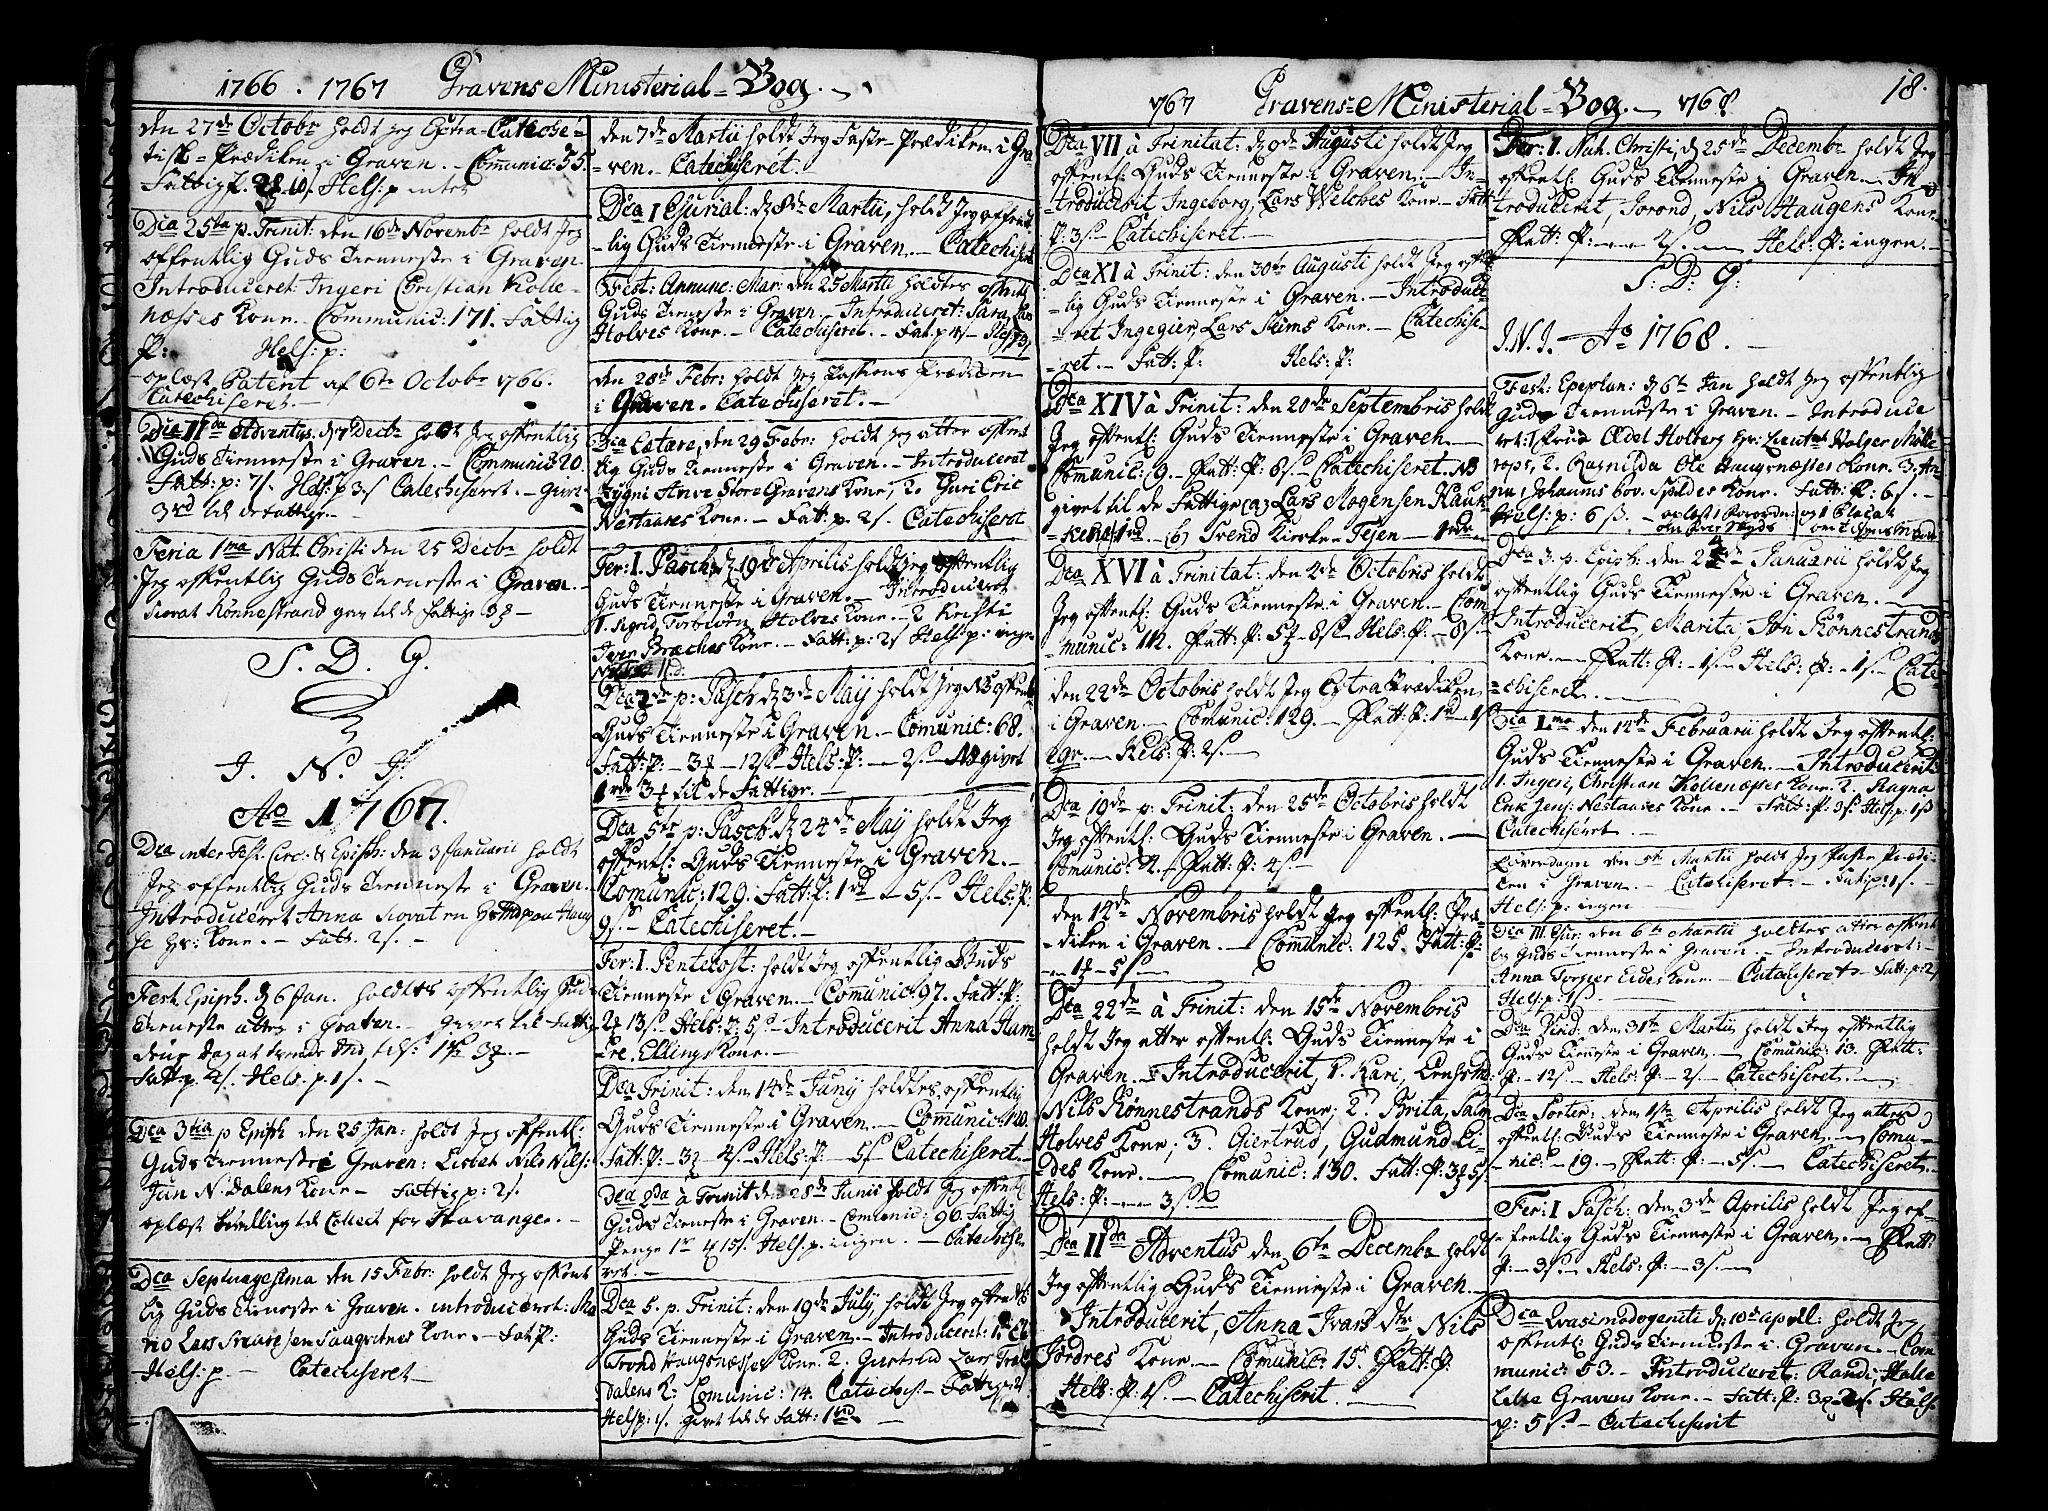 1766. 1767 Gravens Ministerial-Bog.
den 27de Octobr holdt jeg Extra-Catheche-
tisk-Prædiken i Graven. - Communic: 55.
Fattig p. Hels: p inter
Dca 25ta p. Trinit: den 16de Novembr holdt Jeg
offentlig Guds Tienneste i Graven.
Introduceret: Ingeri Christian Kolle-
næsses Kone. Communic: 171. Fattig
P: Hels: p:
oplæst Patent af 6te Octobr 1766.
Catechiseret. -
Dca IIda Adventus, d. 7 Decbr holdt Jeg offentlig
Guds Tienneste i Graven. - Communic 20.
Fatt: p: 7s. Hels: p 3s Catechiseret. - givet
3rd til de fattige. -
Feria 1ma Nat. Christi den 25 Decbr holdt
Jeg offentlig Guds Tieneste i Graven. -
Siovat Rønnestrand gav til de fattige
S. D. G.
I. N. J.
Ao 1767.
Dca inter Fest. Circ: & Epiph: den 3 Januarii holdt
Jeg offentlig Guds Tienneste i Graven.
Introduceret Anna Siovat
Kone. - Fatt. 2s. -
Fest. Epiph. d 6 Jan. holdtes offentlig Guds
Tieneste i Graven. - Givet til Fattig
Fatt: p. 2s. Hels. p. 1s. -
Dca 3tia p Epiph den 25 Jan: holdt Jeg offentl:
Guds Tienneste i Graven: Lisbet Nils Nils:
Jun N. Dalens Kone - Fattig p: 2s.
oplæst til Collect for Stavanger. -
Dca Septuagesima den 15 Febr: holdt Jeg offent
lig Guds Tieneste i Graven. introduceret: Ma
Kone. - Fatt P:
Hels: p. - Catechiseret -
den 7de Martii holdt Jeg Faste-Prædiken i Gra
-ven. - Catechiseret. -
Dca I Esurial: d 8de Martii, holdt Jeg offent
-lig Guds Tienneste i Graven. - Catechiseret
Fest: Annunc: Mar: den 25 Martii holdtes offentl
Guds Tieneste i Graven. - Introduceret: Sara
Holves Kone. - Catechiseret. - Fat. p
den 28de Febr: holdt Jeg Passions Prædiken
i Graven. Catechiseret. -
Dca Lætare, den 29 Febr: holdt Jeg atter offent
lig Guds Tienneste i Graven. - Introduceret
Store Gravens Kone, 2. Guri Eric
Nestaares Kone. - Fatt: p. 2s. Catechiseret
Fer: I. Pasch: d 19de Aprilis holdt Jeg offentlig
Guds Tienneste i Graven. - Introduceret
1. Sigrid, Torbiörn Holves Kone - 2 Kristi
Iver Bræches Kone. - Fatt: p: 2s Hels: p: ingen
Dca 2de p: Pasch d 3de Maij holdt Jeg offentl
Guds Tienneste i Graven - Comunic: 68.
Fatt: P: - 12s Hels: P: - 2s. - NB givet
til de Fattige. -
Dca 5te p: Pasch. d 24de Maij holdt Jeg
offentl: Guds Tienneste i Graven. -
Comunic: 129. Fatt: P: 1rd - 5s. - Hels: P:
9s. - Catechiseret. -
Fer: I. Pentecost: holdt Jeg offentlig Guds
Tienneste i Graven. - Comunic: 97. Fatt: P:
13s. - Hels: P: 5s. - Introducerit Anna Ham
re, Ellings Kone. -
Dca Trinit: den 14de Junij holdtes offentlig
Guds Tienneste i Graven. - Comunic: 120.
Fatt: P: - 4s. - Hels: P: - 5s Catechiseret. -
Dca 2da à Trinit den 28de Junii holdt Jeg offentl
Guds Tienneste i Graven. - Comunic: 96. Fattig
Penge 15s. Hels: p. ingen. - Catechise
ret. -
Dca 5. p. Trinit: den 19de July, holdt Jeg offentlig
Guds Tienneste i Graven. - Introducerit:
Trond Haugsnæsses Kone. 2. Giertrud Lars
dalens K: Comunic: 14. Catechis. - Fattig 2s
Hels p: 1s. givet til de Fatt: -
1767 Gravens-Ministerial-Bog. - 1768 18.
Dca VII à Trinitat: d 9de Augusti holdt Jeg
offentl: Guds Tienneste i Graven. - In-
troducerit Ingeborg, Lars Welches Kone. - Fatt
P: 3s. - Catechiseret. -
Dca XI à Trinit: den 30te Augusti holdt Jeg offent
-lig Guds Tienneste i Graven. - Introduce-
ret Ingegier, Lars Seims Kone. - Catechise-
ret. - Fatt: P: Hels: P:
Dca XIV à Trinit: den 20de Septembris holdt
Jeg offentl: Guds Tienneste i Graven. -
Comunic: 9. - Fatt: P: 8s. - Catechiseret. NB
givet til de Fattige (a) Lars Mogensen Hauk
1rd. - (b) Trend Kirke-Tejen - 1rd
Dca XVI à Trinitat: den 4de Octobris holdt
Jeg offentl: Guds Tienneste i Graven. - Com
munic: 112. Fatt: P: 8s. - Hels: P: - 8s. -
den 22de Octobris holdt Jeg Extra Prædiken
i Graven. - Comunic: 129. - Fatt: P: 1rd
Hels: P: 2s. -
Dca 19de p: Trinit: den 25de Octobris holdt
Jeg offentl: Guds Tienneste i Graven. -
Comunic: 2. - Fatt: P: 4s. -
den 14de Novembris holdt Jeg offentl: Præ-
-diken i Graven. - Comunic: 125. Fatt: P:
5s. -
Dca 22de à Trinit: den 15de Novembris
holdt Jeg atter offentl: Guds Tienneste i
Graven. - Introducerit, 1. Kari,
Nils Rønnestrands Kone; 2. Brita, Salm
Holves Kone; 3. Giertrud, Gudmund Ei-
des Kone. - Comunic: 130. Fatt: P: 5s.
Hels: P: - 3s. -
Dca IIda Adventus den 6te Decembr holdt
Jeg offentlig Guds Tienneste i Graven. -
Introducerit, Anna Ivars dtr, Nils
Jordres Kone. - Comunic: 15. Fatt: P:
Hels: P: 4s. - Catechiserit. -
Fer: I. Nat. Christi, d 25de Decembr holdt Jeg
offentl: Guds Tienneste i Graven. - In-
troducerit, Jorond, Nils Haugens Kone.
Fatt: P: - 2s. - Hels: P: ingen. -
S: D: G:
J. N. J. - Ao 1768. -
Fest: Epiphan: d 6te Jan holdt Jeg offentlig
Guds Tienneste i Graven. - Introduce
ret: 1 Frue Edel Holberg Hr: Lieutnt Holger
2. Ragnilda Ole Haugsnæsses Kone. 3. An
na, Johannis bov. Spildes Kone. Fatt: P: 6s. -
Hels: p: 6 s. - oplæst 1 Forordn: og 1 Placat
Dca 3. p. Epiph: den 24de Januarii holdt Jeg
offentlig Guds Tienneste i Graven. -
Introducerit, Marita, Jon Rønnestrands
Kone. - Fatt: P: - 1s. - Hels: P: - 1s. Cate-
-chiseret. -
Dca Lma den 14de Februarii holdt Jeg offentl:
Guds Tienneste i Graven. - Introducerit
1. Ingeri, Christian Kollenæsses Kone. 2. Ragna
Erik Jens: Nestaaes Kone. - Fatt: P: 3s. Hels: p. 1s
Catechiseret. -
Løverdagen den 5te Martii holdt Jeg Faste Prædi-
ken i Graven. - Catechiseret. - Fatt: p: 1s. -
Hels: p: ingen
Dca III Esur: den 6te Martii holdtes atter offent
lig Guds Tienneste i Graven. - Introduceret:
Anna Torger Eides Kone. - Catechiseret - Fatt: p: 2s
Hels: p: 1s. -
Dca den 31te Martii holdt Jeg offentlig
Guds Tienneste i Graven. - Comunic: 13. Fatt:
P: - 12s. - Hels: P: - 2s. - Catechiseret. -
den 1ste Aprilis holdt Jeg atter
offentl: Guds Tienneste i Graven. - Comu-
nic: - 19. - Fatt: P: - 5s. - Catechiseret. -
Fer: I Pasch: den 3de Aprilis holdt Jeg of-
fentlig Guds Tienneste i Graven. - Fatt:
P: - 3s. - Hels: P: - 3s. -
Dca Qvasimodogeniti d: 10de April: holdt Jeg
offentl: Guds Tienneste i Graven. - Com
munic: 53. - Introduceret: Randi, Halle
Lille Gravens Kone. - Fatt: P: Hels:
p: 5 s. - Catechiserit